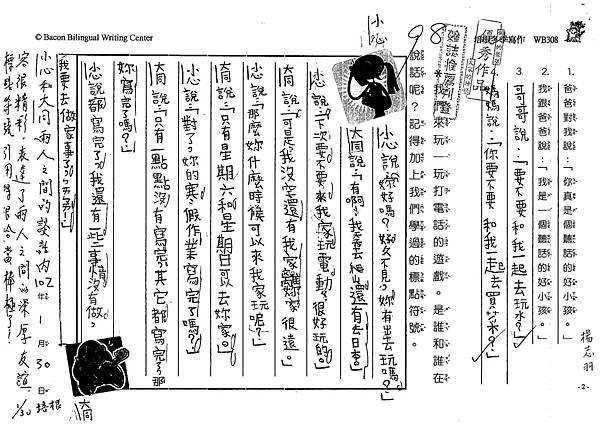 © Bacon Bilingual Writing Center
培根冬季寫作 WB308
1. 爸爸對我說：「你真是個聽話的好小孩。」
2. 我跟爸爸說：「我是一個聽話的好小孩。」
3. 哥哥說：「要不要和我一起去玩水？」
4. 媽媽說：「你要不要和我一起去買菜？」
楊志羽
98
優秀作品
雜誌推薦刊登
＊我們來玩一玩打電話的遊戲。是誰和誰在
說話呢？記得加上我們學過的標點符號。
小心
小心說：「妳好嗎？好久不見，妳有出去玩嗎？」
大同說：「有啊！我去爬山還有去日本。」
小心說：「下次要不要來我家玩電動，很好玩的。」
大同說：「可是我沒空還有我家離妳家很遠。」
小心說：「那麼妳什麼時候可以來我家玩呢？」
大同說：「只有星期六和星期日可以去妳家。」
小心說：「對了！妳的寒假作業寫完了嗎？」
大同說：「只有一點點沒有寫完，其它都寫完了，那
妳寫完了嗎？」
小心說：「都寫完了，我還有一些事情沒有做。
我要去做家事了，
大同
小心和大同兩人之間的談話內
容很精彩，表達了兩人之間的深厚友誼，
標點符號引用
棒極了！
1/30
102年1月30日
培根
-2-